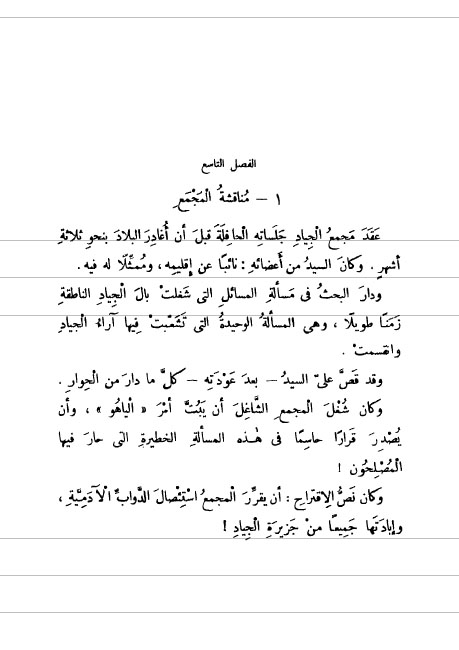 الفصل التاسع
١ – مُناقشةُ الْمَجْمَعِ
عَقَدَ مَجمعُ الْجِيادِ جَلَساتِه الْحافِلَةَ قبلَ أن أُغادِرَ البلادَ بنحوِ ثلاثةِ
أشهرٍ . وكانَ السيدُ من أَعضائهِ : نائبًا عن إقليمِه ، ومُمثِّلًا له فيه .
ودارَ البحثُ فى مَسألةِ المسائلِ التى شَغلتْ بالَ الْجِيادِ الناطقةِ
زمَنًا طويلًا ، وهى المسألةُ الوحيدةُ التى تَشَعَّبتْ فِيها آراءُ الجيادِ
وانقسمتْ .
وقد قَصَّ علىّ السيدُ – بعدَ عَوْدَتِه – كلَّ ما دارَ من الْحِوارِ .
وكان شُغْلَ المجمعِ الشَّاغِلَ أن يَبُتَّ أمْرَ « الْياهُو » ، وأن
يُصْدِرَ قَرارًا حاسِمًا فى هٰـذه المسألةِ الخطيرةِ التى حارَ فيها
الْمُصْلِحُون !
وكان نَصُّ الِاقتراحِ : أن يقرِّرَ الْمجمعُ اسْتِئْصالَ الدَّوابِّ الْآدَمِيَّةِ ،
وإبادَتَها جَمِيعًا مِنْ جَزيرةِ الْجِيادِ !